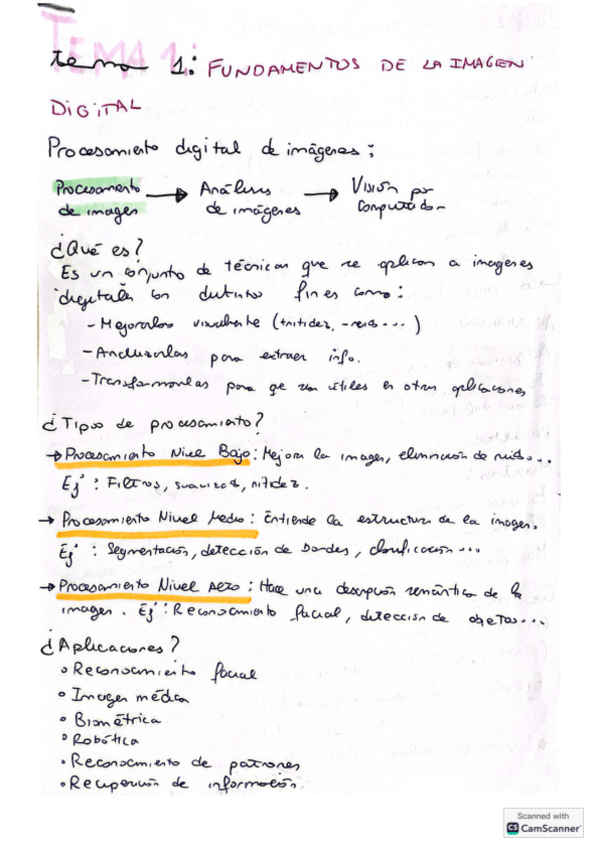 TEMA 1:
tema 1: FUNDAMENTOS DE LA IMAGEN
DIGITAL
Procesamiento digital de imágenes:
Procesamiento → Análisis → Visión por
de imagen de imágenes Computador
¿Qué es?
Es un conjunto de técnicas que se aplican a imágenes
digitales con distintos fines como:
- Mejorarlas visualmente (+nitidez, -ruido...)
- Analizarlas para extraer info.
- Transformarlas para qe sean útiles en otras aplicaciones
¿Tipos de procesamiento?
→ Procesamiento Nivel Bajo: Mejora la imagen, eliminación de ruido...
Ej: Filtros, suavizado, nitidez.
→ Procesamiento Nivel Medio: Entiende la estructura de la imagen.
Ej: Segmentación, detección de bordes, clasificación...
→ Procesamiento Nivel Alto: Hace una descripción semántica de la
imagen. Ej: Reconocimiento facial, detección de objetos...
¿Aplicaciones?
° Reconocimiento facial
° Imagen médica
° Biométrica
° Robótica
° Reconocimiento de patrones
° Recuperación de información.
Scanned with
CS CamScanner